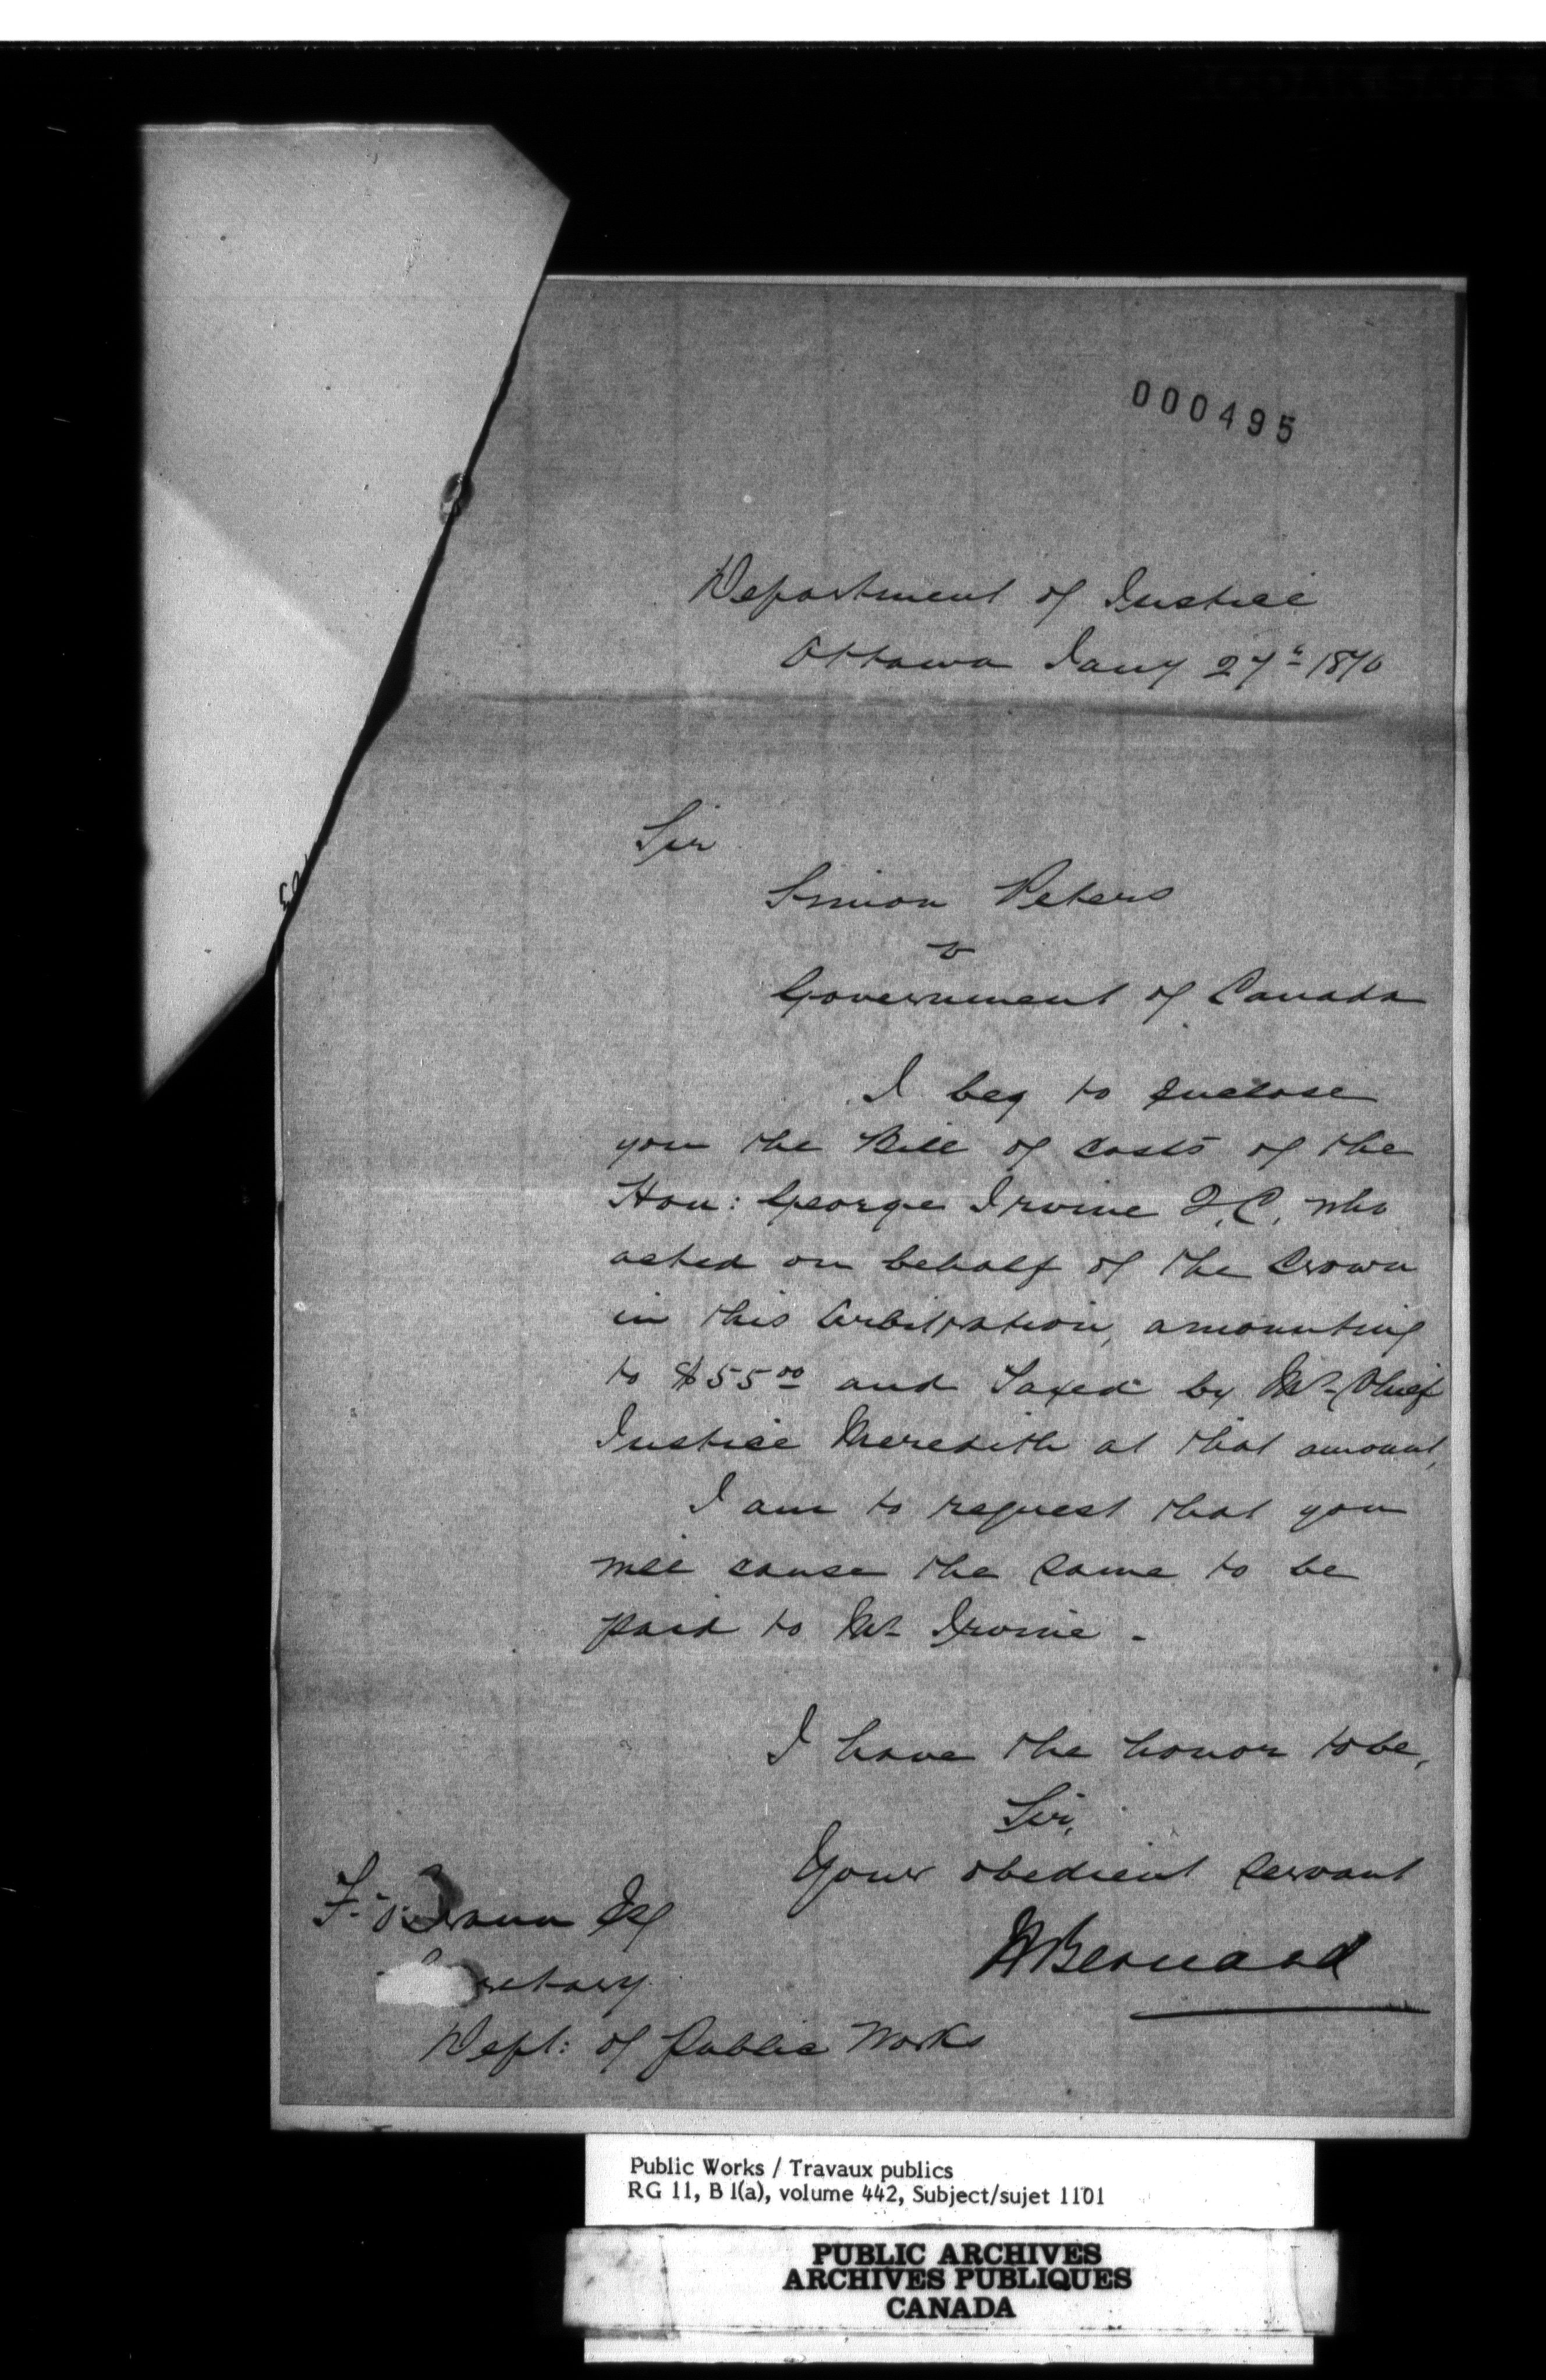 000495
Department of Justice
Ottawa Jany 27th 1870
Sir
Simon Peters
v
Government of Canada
I beg to enclose
you the Bill of Costs of the
Hon: George Irvine Q.C. who
acted on behalf of the Crown
in this Arbitration, amounting
to $55.00 and Taxed by Mr Chief
Justice Meredith at that amount,
I am to request that you
will cause the same to be
paid to Mr Irvine -
I have the honor to be,
Sir,
Your obedient servant
H Bernard
F. Braun Esq
Secretary
Dept: of Public Works
Public Works / Travaux publics
RG 11, B 1(a), volume 442, Subject/sujet 1101
PUBLIC ARCHIVES
ARCHIVES PUBLIQUES
CANADA